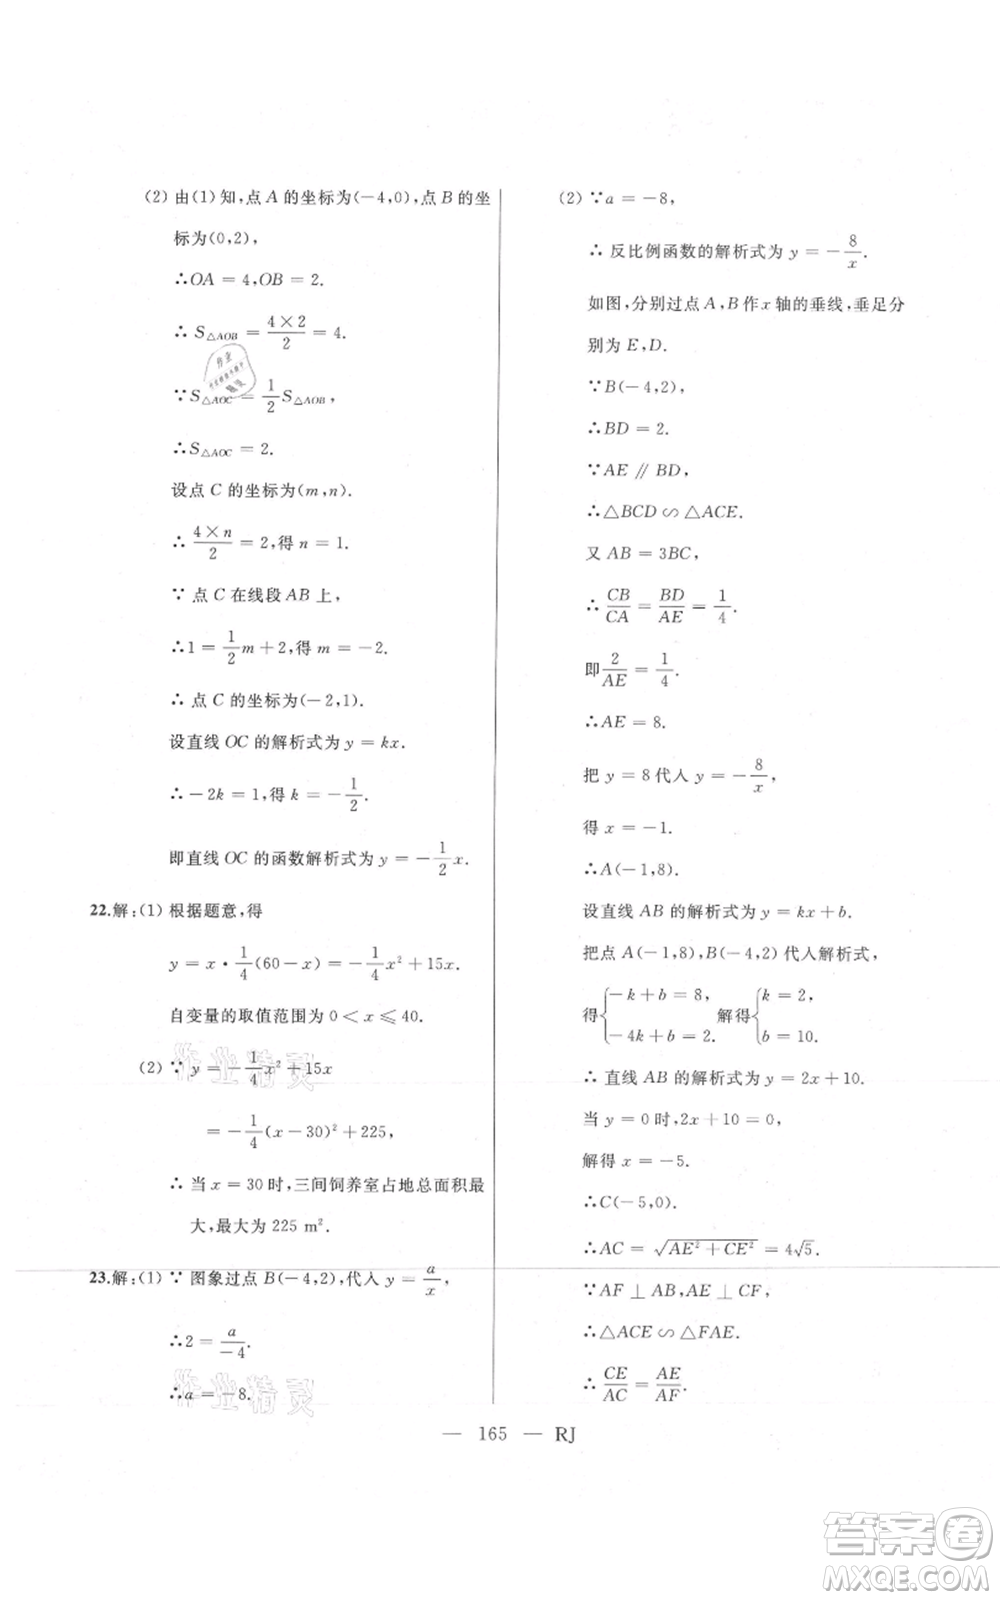 (2) 由(1)知,点 A 的坐标为(－4,0),点 B 的坐
标为(0,2),
∴OA = 4,OB = 2.
∴ S△AOB = (4×2)/2 = 4.
∵S△AOC = 1/2 S△AOB,
∴S△AOC = 2.
设点 C 的坐标为(m,n).
∴ (4×n)/2 = 2,得 n = 1.
∵ 点 C 在线段 AB 上,
∴1 = 1/2 m + 2,得 m = －2.
∴ 点 C 的坐标为(－2,1).
设直线 OC 的解析式为 y = kx.
∴－2k = 1,得 k = －1/2.
即直线 OC 的函数解析式为 y = －1/2 x.
22.解:(1) 根据题意,得
y = x · 1/4 (60－x) = －1/4 x² + 15x.
自变量的取值范围为 0 < x ⩽ 40.
(2) ∵ y = －1/4 x² + 15x
= －1/4 (x－30)² + 225,
∴ 当 x = 30 时,三间饲养室占地总面积最
大,最大为 225 m².
23.解:(1) ∵ 图象过点 B(－4,2),代入 y = a/x,
∴2 = a/－4.
∴a = －8.
(2) ∵a = －8,
∴ 反比例函数的解析式为 y = －8/x.
如图,分别过点 A,B 作 x 轴的垂线,垂足分
别为 E,D.
∵B(－4,2),
∴BD = 2.
∵AE ∥ BD,
∴△BCD ∽ △ACE.
又 AB = 3BC,
∴ CB/CA = BD/AE = 1/4.
即 2/AE = 1/4.
∴AE = 8.
把 y = 8 代入 y = －8/x,
得 x = －1.
∴A(－1,8).
设直线 AB 的解析式为 y = kx + b.
把点 A(－1,8),B(－4,2) 代入解析式,
得{－k + b = 8, －4k + b = 2. 解得{k = 2, b = 10.
∴ 直线 AB 的解析式为 y = 2x + 10.
当 y = 0 时,2x + 10 = 0,
解得 x = －5.
∴C(－5,0).
∴AC = √(AE² + CE²) = 4√5.
∵AF ⊥ AB,AE ⊥ CF,
∴△ACE ∽ △FAE.
∴ CE/AC = AE/AF.
— 165 — RJ
作业精灵
作业精灵
答案卷
MXQE.COM